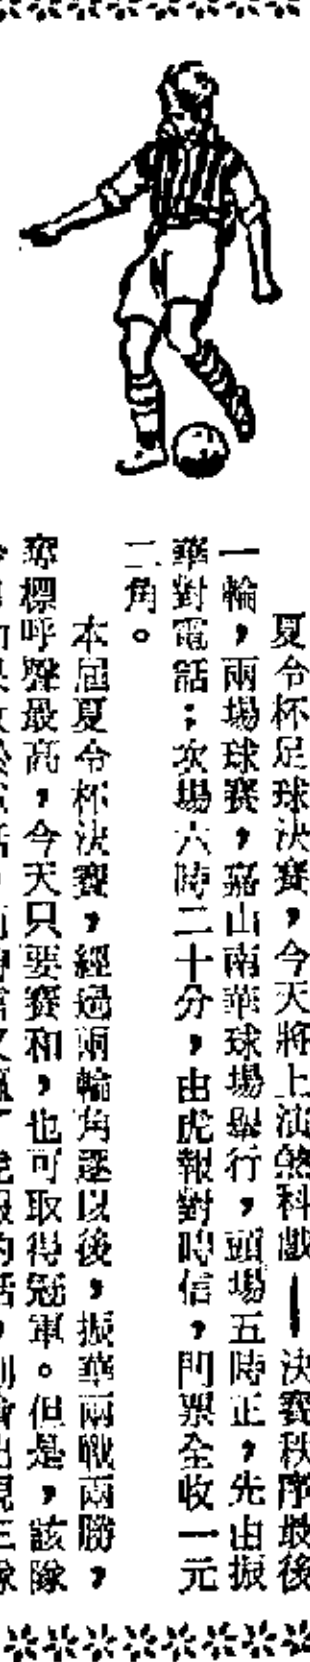 夏令杯足球決賽，今天將上演煞科戲——決賽秩序最後
一輪，兩場球賽，嘉山南華球場舉行，頭場五時正，先由振
華對電話；次場六時二十分，由虎報對時信，門票全收一元
二角。
本屆夏令杯決賽，經過兩輪角逐以後，振華兩戰兩勝，
奪標呼聲最高，今天只要賽和，也可取得冠軍。但是，該隊